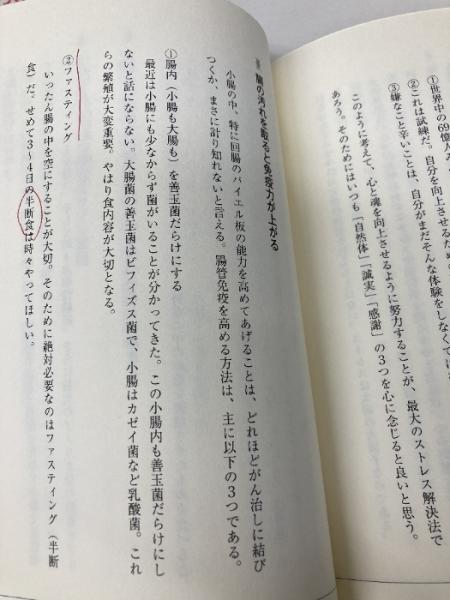 ①世界中の69億人
②これは試練だ。自分を向上させるため
③嫌なこと辛いことは、自分がまだそんな体験をしなくて
このように考えて、心と魂を向上させるように努力することが、最大のストレス解決法で
あろう。そのためにはいつも「自然体」「誠実」「感謝」の3つを心に念じると良いと思う。
腸の汚れを取ると免疫力が上がる
小腸の中、特に回腸のパイエル板の能力を高めてあげることは、どれほどがん治しに結び
つくか、まさに計り知れないと言える。腸管免疫を高める方法は、主に以下の3つである。
①腸内（小腸も大腸も）を善玉菌だらけにする
最近は小腸にも少なからず菌がいることが分かってきた。この小腸内も善玉菌だらけにし
ないと話にならない。大腸菌の善玉菌はビフィズス菌で、小腸はカゼイ菌など乳酸菌。これ
らの繁殖が大変重要。やはり食内容が大切となる。
②ファスティング
いったん腸の中を空にすることが大切。そのために絶対必要なのはファスティング（半断
食）だ。せめて3～4日の半断食は時々やってほしい。